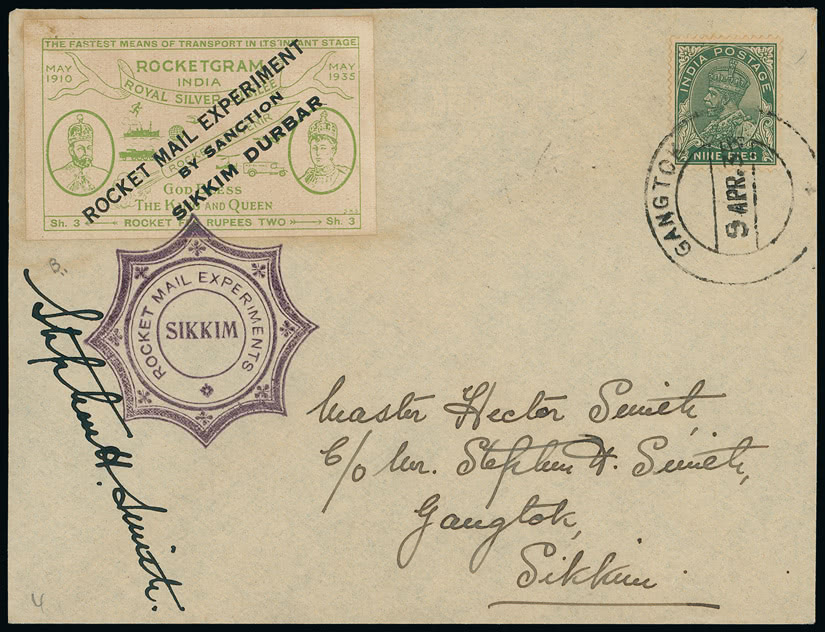 THE FASTEST MEANS OF TRANSPORT IN ITS INFANT STAGE
MAY 1910
ROCKETGRAM
MAY 1935
INDIA
ROYAL SILVER
ROCKET MAIL EXPERIMENT
BY SANCTION
SIKKIM DURBAR
GOD BLESS
THE KING AND QUEEN
Sh. 3
ROCKET
RUPEES TWO
Sh. 3
INDIA POSTAGE
NINE PIES
GANGTOK
9 APR.
B.
ROCKET MAIL EXPERIMENTS
SIKKIM
Stephen H. Smith.
Master Hector Smith,
C/o Mr. Stephen H. Smith,
Gangtok,
Sikkim
4